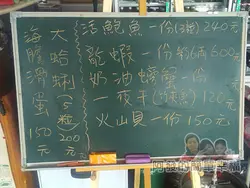 活鮑魚一份(3粒)240元
龍蝦一份約4兩600元
奶油螃蟹一份
一夜干(烤魚)120元
火山貝一份150元
大蛤蜊(5粒)200元
海膽滑蛋150元